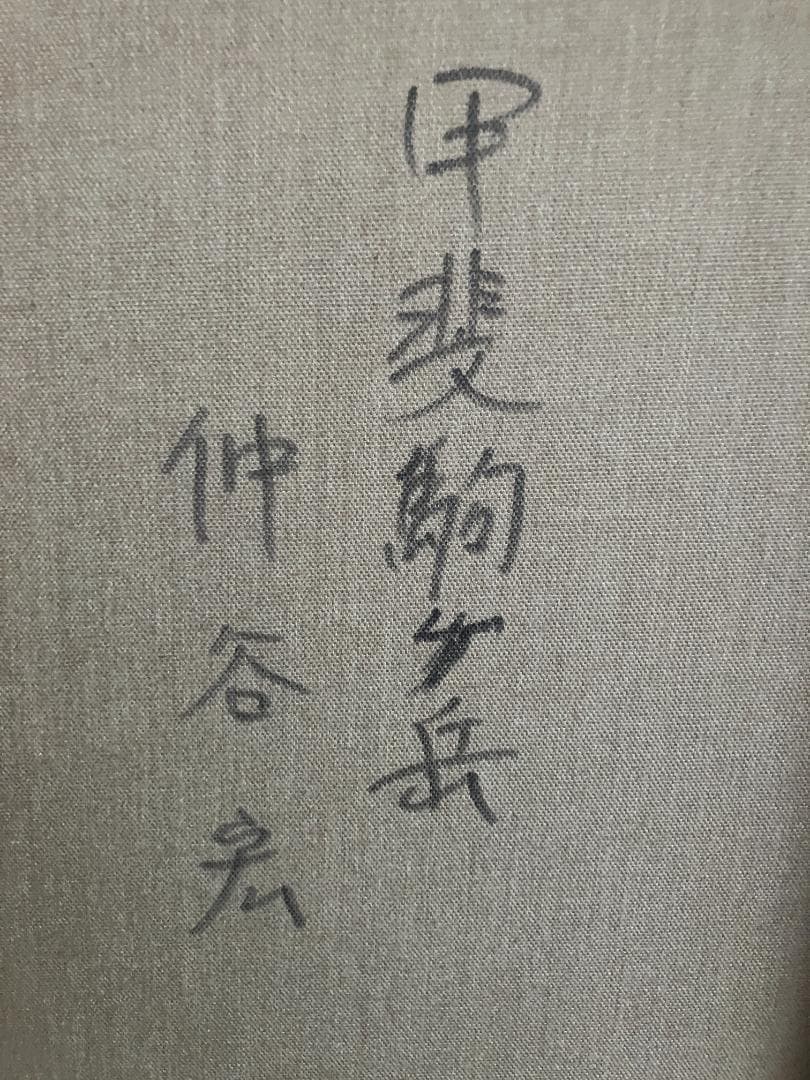 甲斐駒ヶ岳
仲谷宏